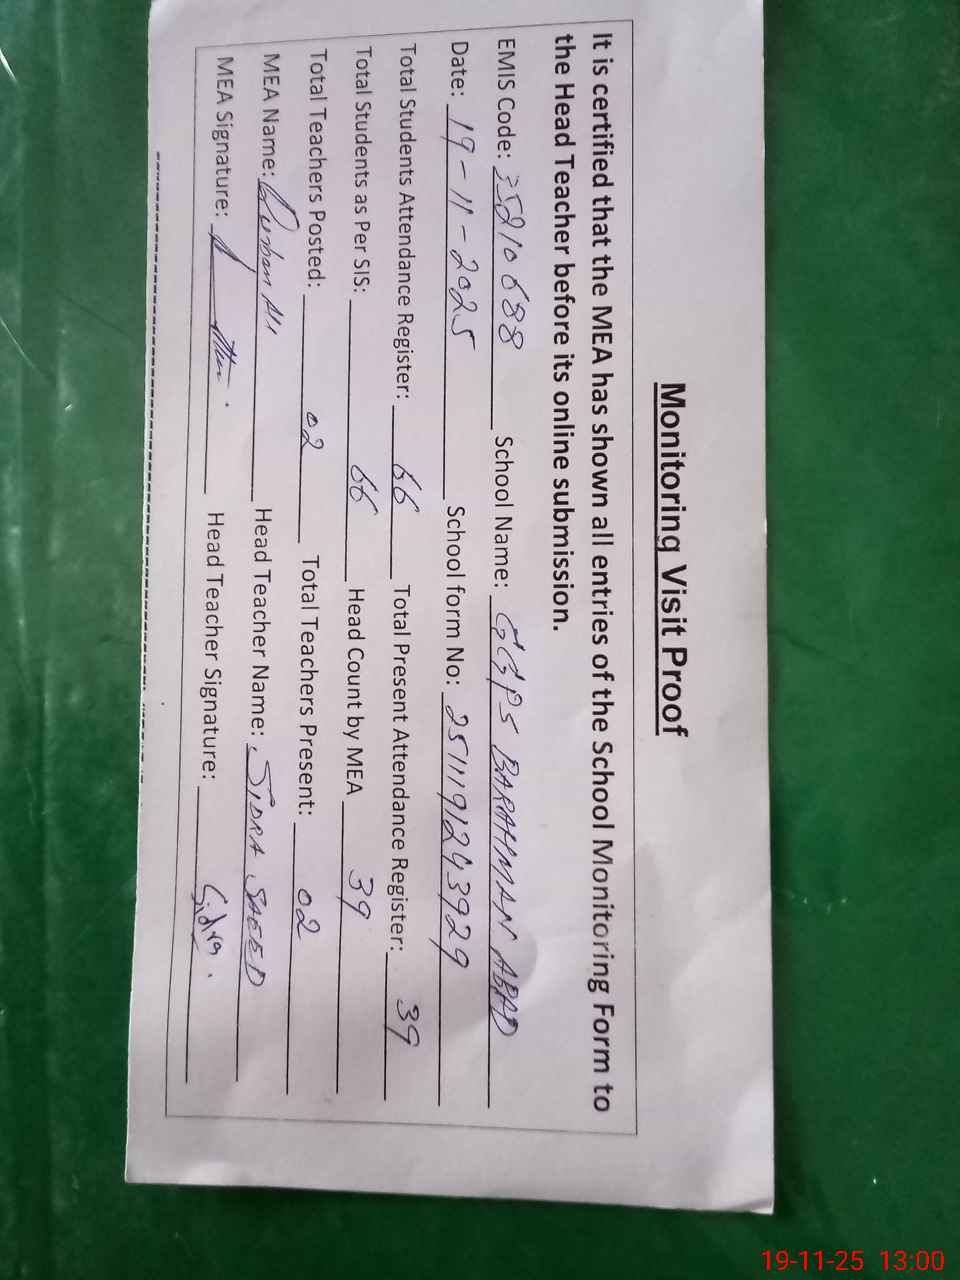 Monitoring Visit Proof
It is certified that the MEA has shown all entries of the School Monitoring Form to
the Head Teacher before its online submission.
EMIS Code: 35210688 School Name: GGPS BARAHMAN ABAD
Date: 19-11-2025 School form No: 251119124 3929
Total Students Attendance Register: 66 Total Present Attendance Register: 39
Total Students as Per SIS: 66 Head Count by MEA 39
Total Teachers Posted: 02 Total Teachers Present: 02
MEA Name: Qurban Ali Head Teacher Name: SIDRA SAEED
MEA Signature: Head Teacher Signature: Sidra.
19-11-25 13:00